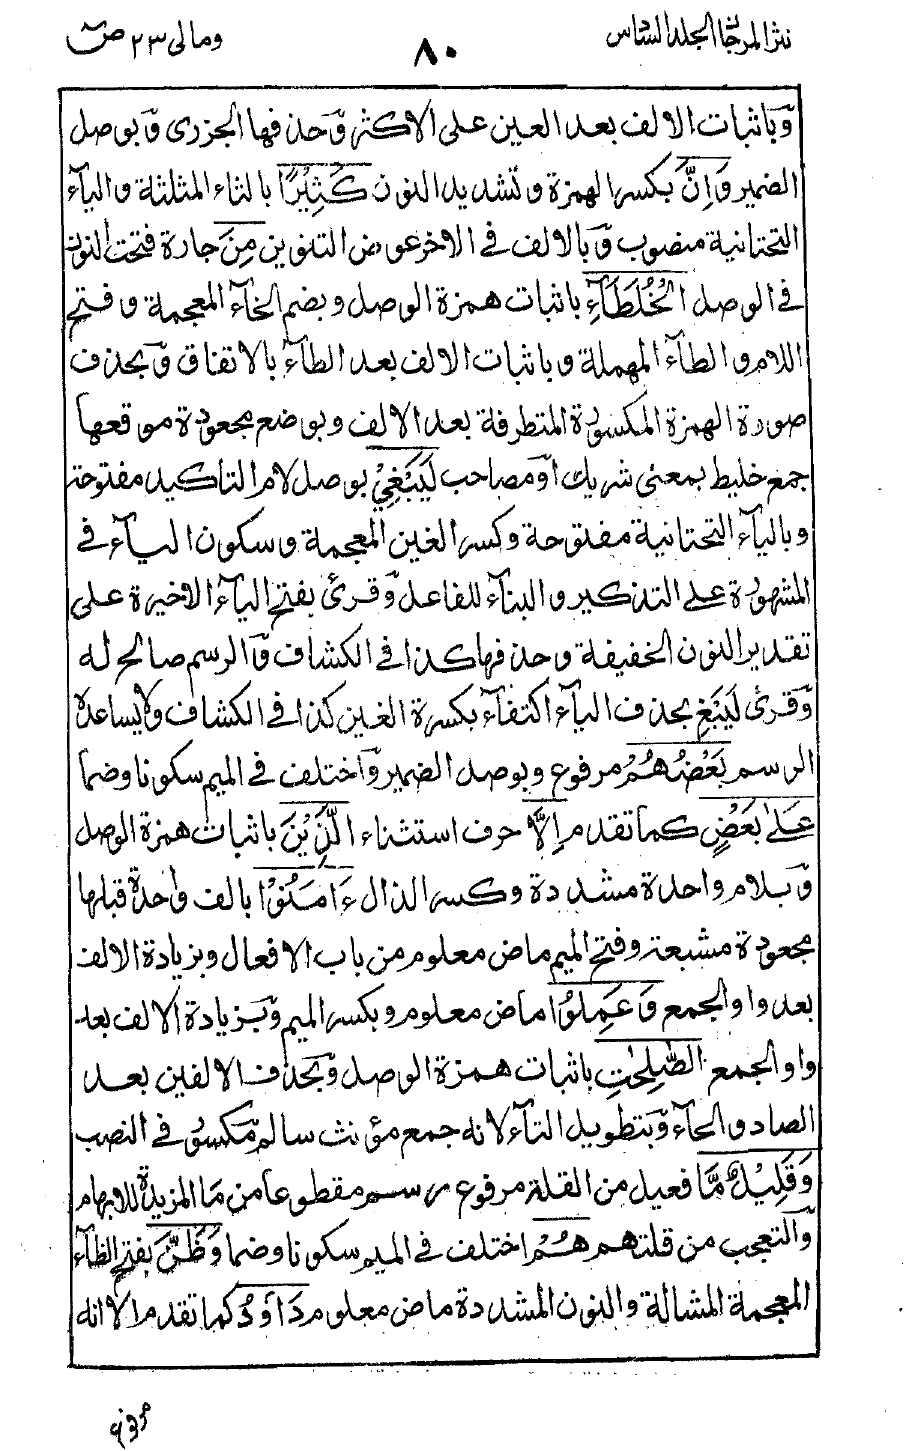 نثر المرجان الجلد السادس
٨٠
ومالى ٢٣ ص
وَبا ثبات الالف بعد العين على الاكثر وَحذفها الجزرى وَبوصل
الضمير وَاِنَّ بكسر الهمزة وتشديد النون كَثِيْرًا بالثاء المثلثة والياۤء
التحتانية منصوب وَبالالف فى الاخر عوض التنوين مِنَ جارة فتحت النون
فى الوصل الْخُلَطَاۤءِ باثبات همزة الوصل وبضم الخاۤء المعجمة وفتح
اللام والطاۤء المهملة وباثبات الالف بعد الطاۤء بالاتفاق وَبحذف
صورة الهمزة المكسورة المتطرفة بعد الالف وبوضع مجعودة موقعها
جمع خليط بمعنى شريك اَو مصاحب لَيَبْغِيْ بوصل لام التاكيد مفتوحة
وبالياۤء التحتانية مفتوحة وكسر الغين المعجمة وسكون الياۤء فى
المشهورة على التذكير والبناۤء للفاعل وَقرئ بفتح الياۤء الاخيرة على
تقدير النون الخفيفة وحذفها كذا فى الكشاف وَالرسم صالح له
وَقرئ لَيَبْغِ بحذف الياۤء اكتفاۤء بكسرة الغين كذا فى الكشاف ولايساعده
الرسم بَعْضُهُمْ مرفوع وبوصل الضمير وَاختلف فى الميم سكونا وضما
عَلٰى بَعْضٍ كما تقدم اِلَّا حرف استثناء الَّذِيْنَ باثبات همزة الوصل
وَبلام واحدة مشددة وكسر الذال ءَامَنُوْا بالف واحدة قبلها
مجعودة مشبعة وفتح الميم ماض معلوم من باب الافعال وبزيادة الالف
بعد واو الجمع وَعَمِلُوا ماض معلوم وبكسر الميم وَبزيادة الالف بعد
واو الجمع الصّٰلِحٰتِ باثبات همزة الوصل وَبحذف الالفين بعد
الصاد والحاۤء وَبتطويل التاۤء لانه جمع مؤنث سالم مكسور فى النصب
وَقَلِيْلٌ مَّا فعيل من القلة مرفوع رسم مقطوعا من مَا المزيدة للابهام
وَالتعجب من قلتهم هُمْ اختلف فى الميم سكونا وضما وَظَنَّ بفتح الظاۤء
المعجمة المشالة والنون المشددة ماض معلوم دَاوٗدُ كما تقدم الا انه